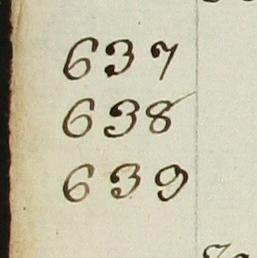 637
638
639